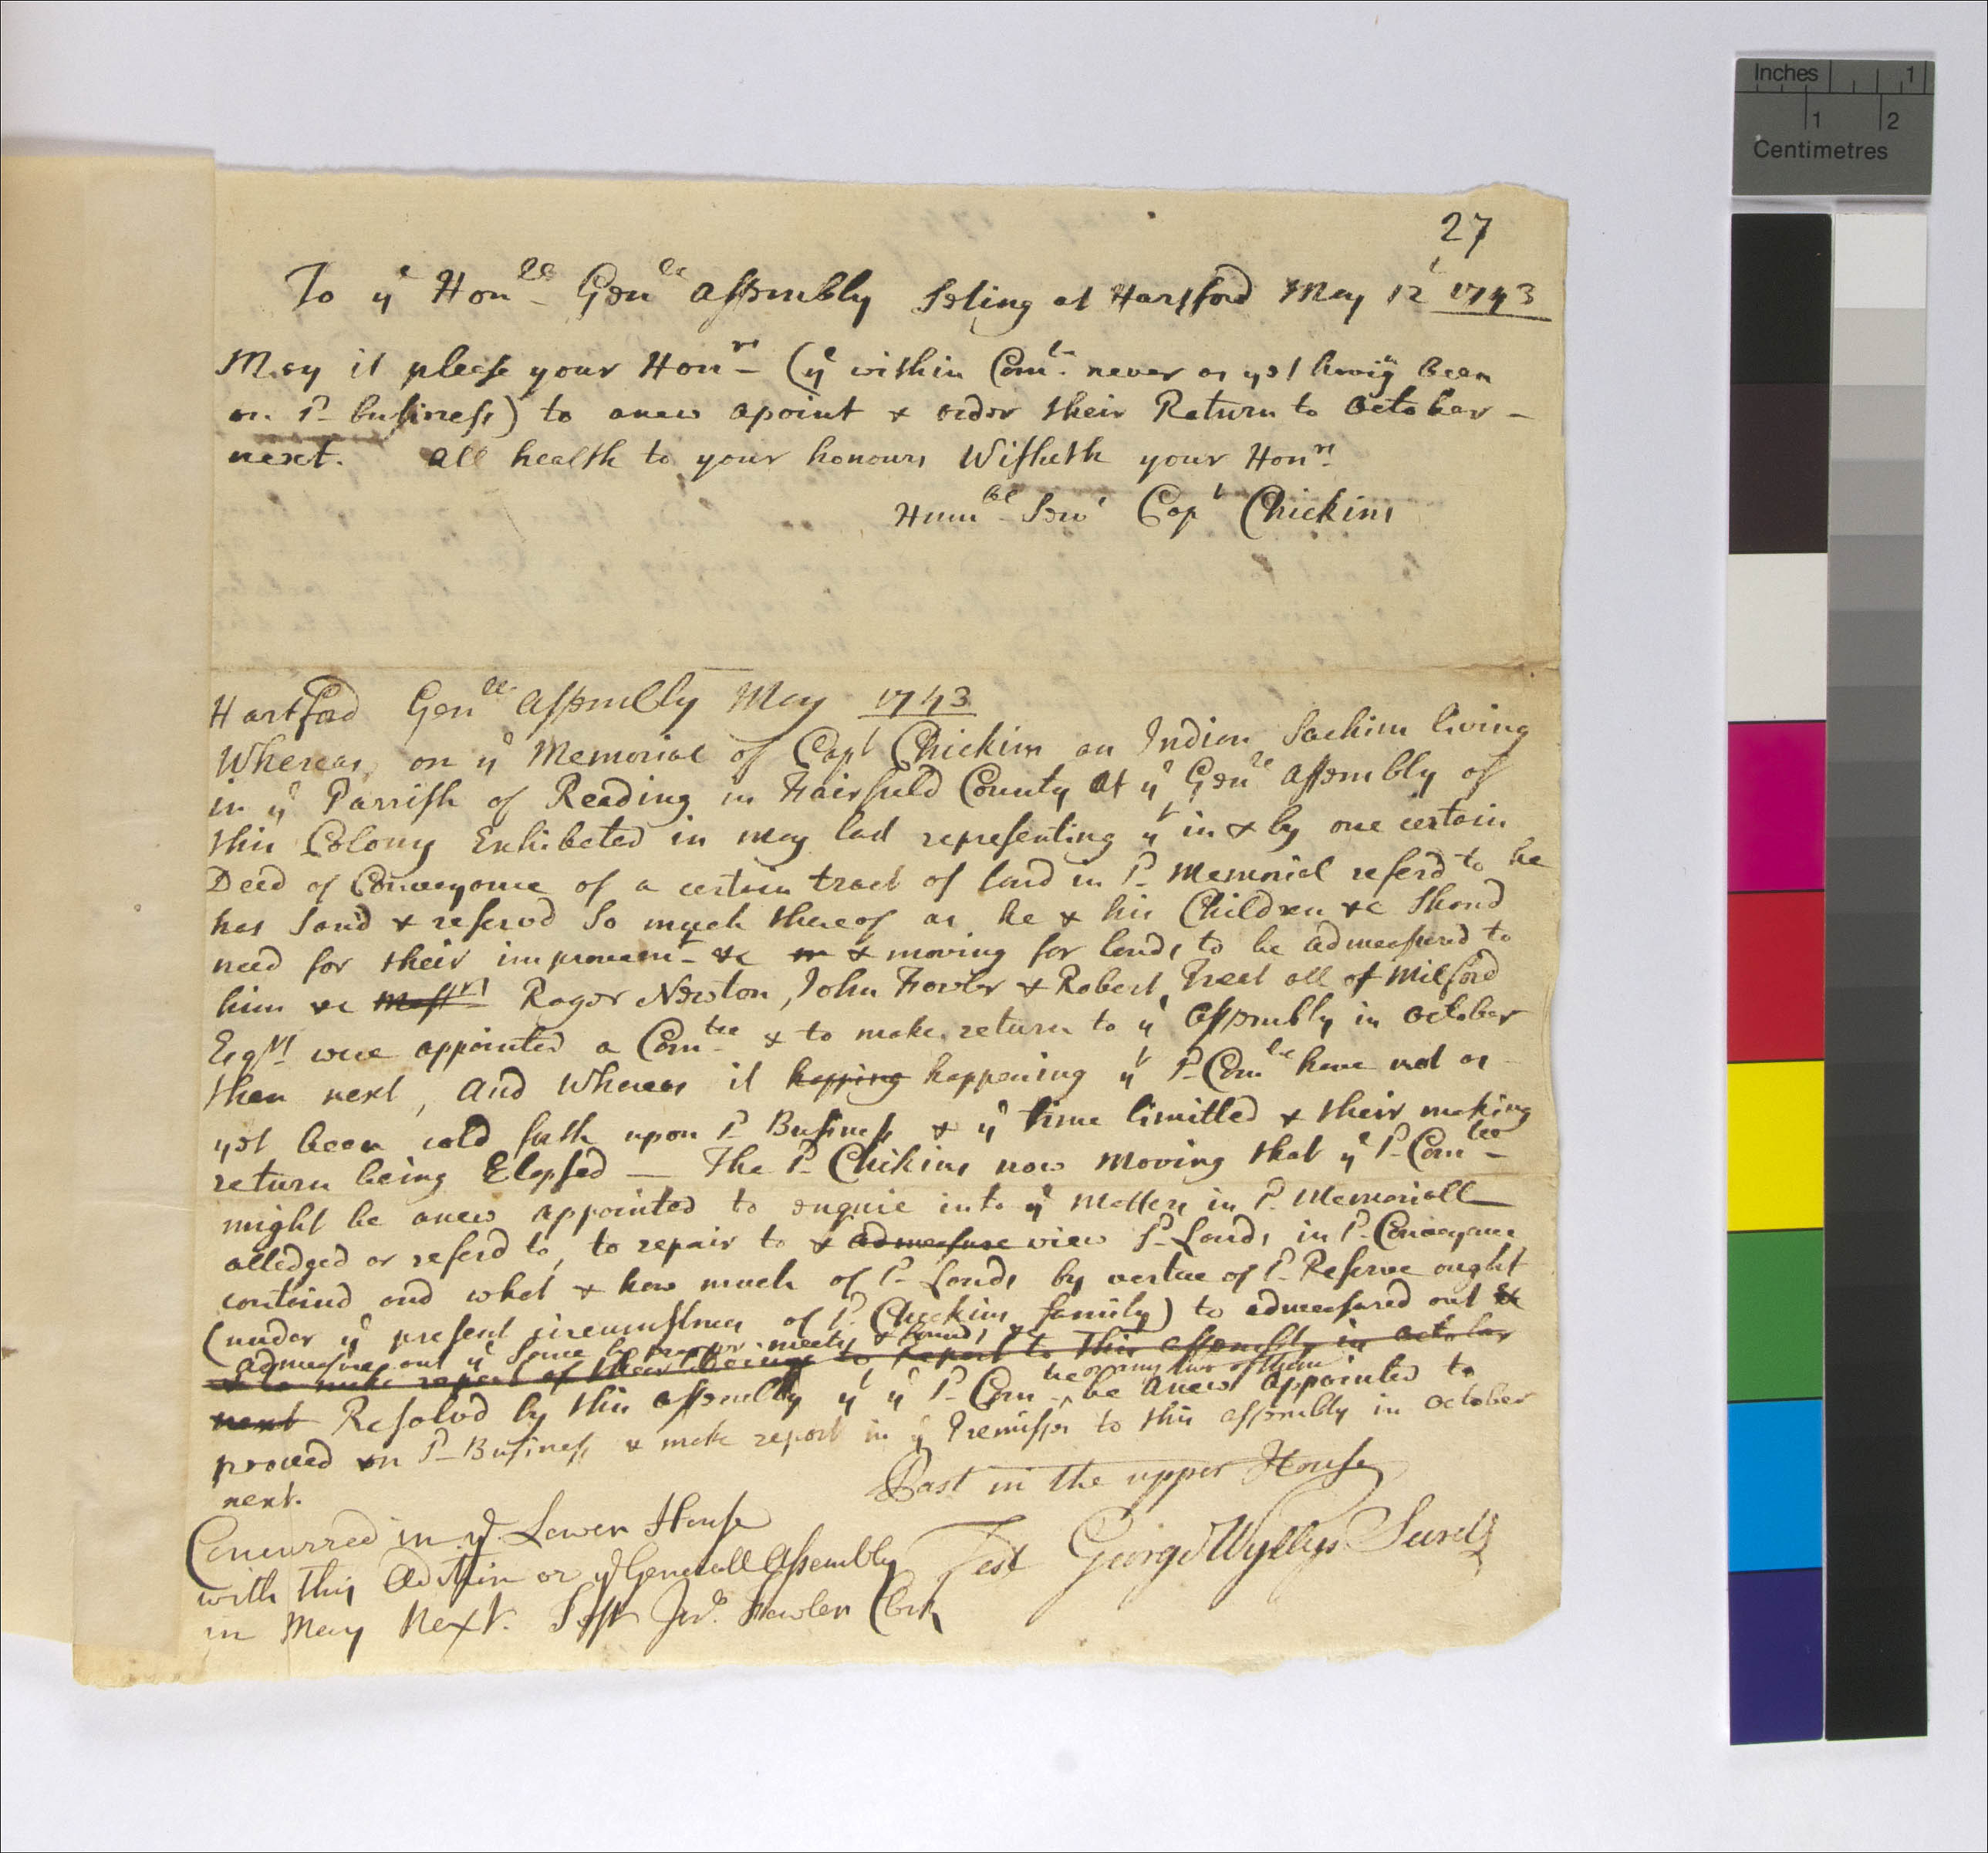 Inches 1
1 2
Centimetres
27
To ye Honle Genll assembly Seting at Hartford May 12t 1743
May it please your Honrs (ye within Comte never as yet havig been
on sd business) to anew apoint & order their Return to October
next. all health to your honours Wisheth your Honrs
Humble Servt Capt Chickins
Hartford Genll assembly May 1743
Whereas, on ye Memorial of Capt Chickins an Indian Sachim living
in ye Parrish of Reading in Fairfield County at ye Genll assembly of
this Colony Exhibeted in may last representing yt in & by one certain
Deed of Conveyance of a certain tract of land in sd Memorial referd to he
has savd & reservd so much thereof as he & his Children &c Shoud
need for their improvemt &c & moving for lands to be admeasured to
him &c Messrs Roger Newton, John Fowler & Robert Treat all of Milford
Esqrs were appointed a Comtee & to make return to ye assembly in October
then next, and Whereas it happing happening yt sd Comtee have not as
yet been cold forth upon sd Business & ye time limitted & their making
return being Elapsed — The sd Chikins now moving that ye sd Comtee
might be anew appointed to enquire into ye matters in sd Memoriall
alledged or referd to, to repair to & admeasure view sd Lands in sd Conveyance
containd and what & how much of sd Lands by vertue of sd Reserve ought
(under ye present circumstances of sd Chickins family) to admeasured out &
admeasure out ye same by proper meets & bounds &c
& to make report of their doings to report to this assembly in october
next Resolvd by this assembly yt ye sd Comtee or any two of them be anew appointed to
proceed on sd Business & make report in ye Premisses to this assembly in October
next.
Past in the upper House
Test George Wyllys Secrety
Concurred in ye Lower House
with this Adition or ye Generall Assembly
in May Next. Test Jno. Fowler Clerk